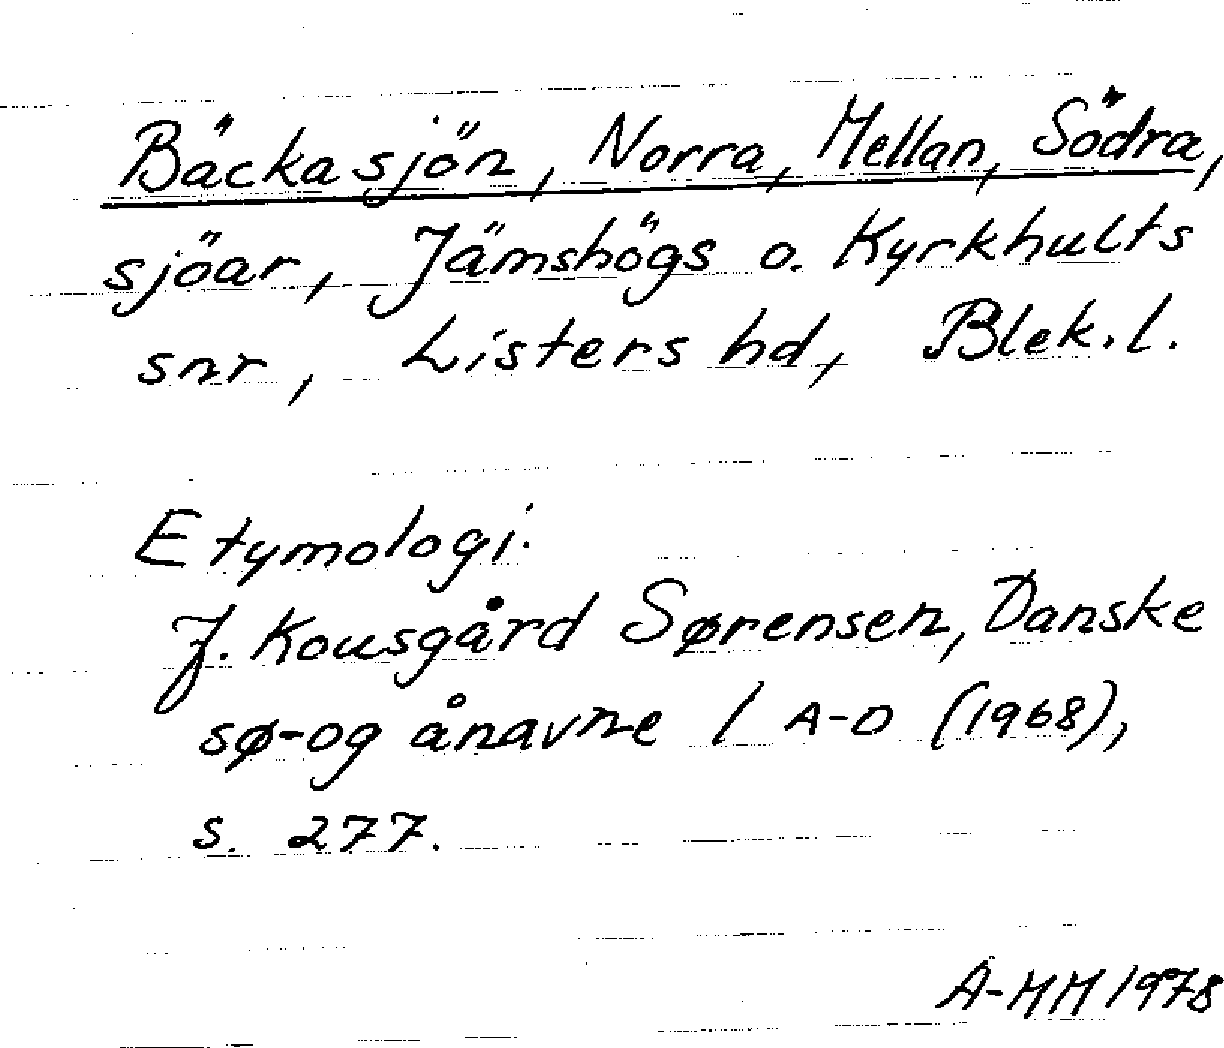 Bäckasjön, Norra, Mellan, Södra,
sjöar, Jämshögs o. Kyrkhults
snr, Listers hd, Blek. l.
Etymologi:
J. Kousgård Sørensen, Danske
sø- og ånavne 1 A-D (1968),
s. 277.
A-MM 1978